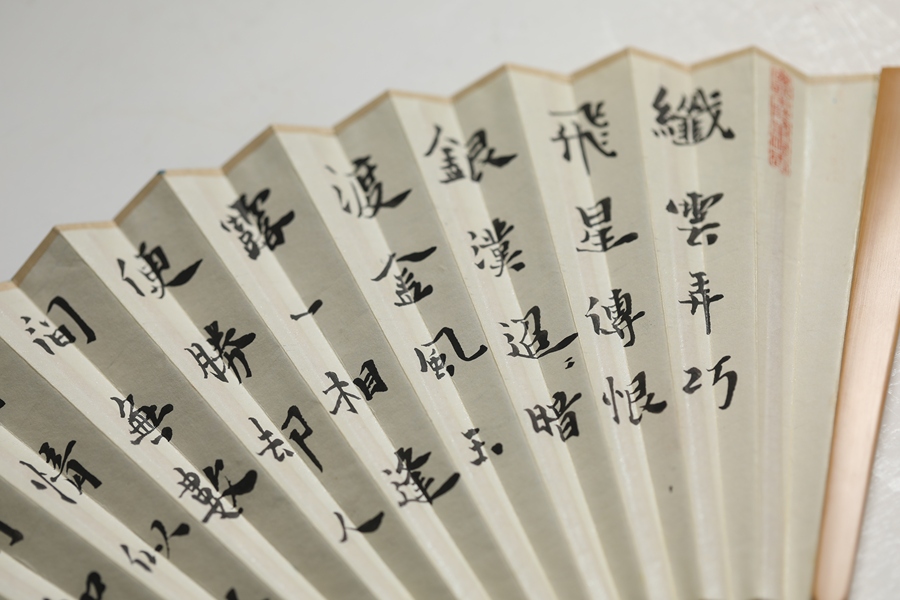 纖雲弄巧
飛星傳恨
銀漢迢〻暗
渡金風玉
露一相逢
便勝却人
間無數
情似